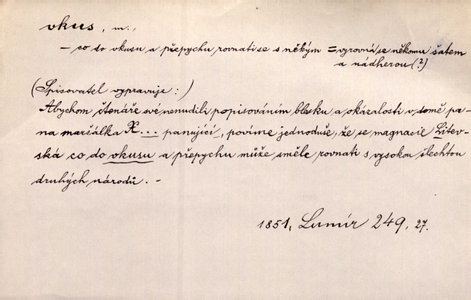 vkus, m.,
– co do vkusu a přepychu rovnati se s někým = vyrovná se někomu šatem
a nádherou (?)
(Spisovatel vypravuje:)
Abychom čtenáře své nenudili popisováním blesku a okázalosti v domě pa-
na maršálka R... panující, povíme jednoduše, že se magnacie Litev-
ská co do vkusu a přepychu může směle rovnati s vysoka šlechtou
druhých národů. –
1851, Lumír 249, 27.